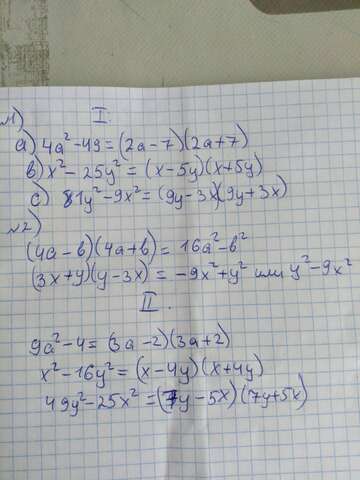 №1) I.
a) 4a²-49=(2a-7)(2a+7)
b) x²-25y²=(x-5y)(x+5y)
c) 81y²-9x²=(9y-3x)(9y+3x)
№2)
(4a-b)(4a+b)=16a²-b²
(3x+y)(y-3x)=-9x²+y² или y²-9x²
II.
9a²-4=(3a-2)(3a+2)
x²-16y²=(x-4y)(x+4y)
49y²-25x²=(7y-5x)(7y+5x)